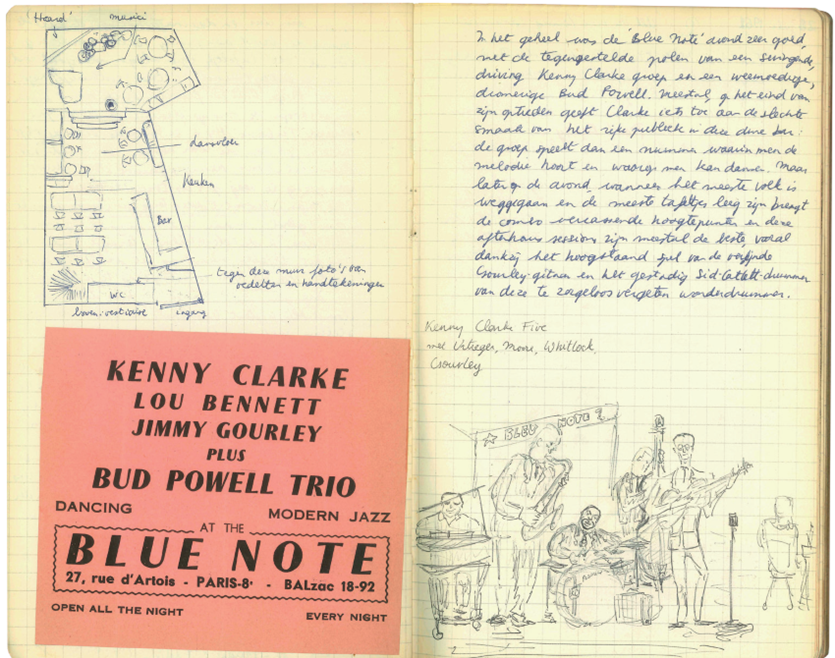 'Haard' musici
dansvloer
Keuken
Bar
tegen deze muur foto's van
vedetten en handtekeningen
WC
boven: vestiaire ingang
KENNY CLARKE
LOU BENNETT
JIMMY GOURLEY
PLUS
BUD POWELL TRIO
DANCING MODERN JAZZ
AT THE
BLUE NOTE
27, rue d'Artois - PARIS-8e - BALzac 18-92
OPEN ALL THE NIGHT EVERY NIGHT
In het geheel was de 'Blue Note' avond zeer goed,
met de tegengestelde polen van een swingende,
driving Kenny Clarke groep en een weemoedige,
dromerige Bud Powell. Meestal, op het eind van
zijn optreden geeft Clarke iets toe aan de slechte
smaak van het rijke publiek in deze dure bar:
de groep speelt dan een nummer waarin men de
melodie hoort en waarop men kan dansen. Maar
later op de avond, wanneer het meeste volk is
weggegaan en de meeste tafeltjes leeg zijn brengt
de combo verrassende hoogtepunten en deze
afterhours sessions zijn meestal de beste, vooral
dankzij het hoogstaand spel van de verfijnde
Gourley-gitaar en het gestadig Sid-Catlett-drummen
van deze te zorgeloos vergeten wonderdrummer.
Kenny Clarke Five
met Urtreger, Mone, Whitlock,
Gourley
BLEU NOTE